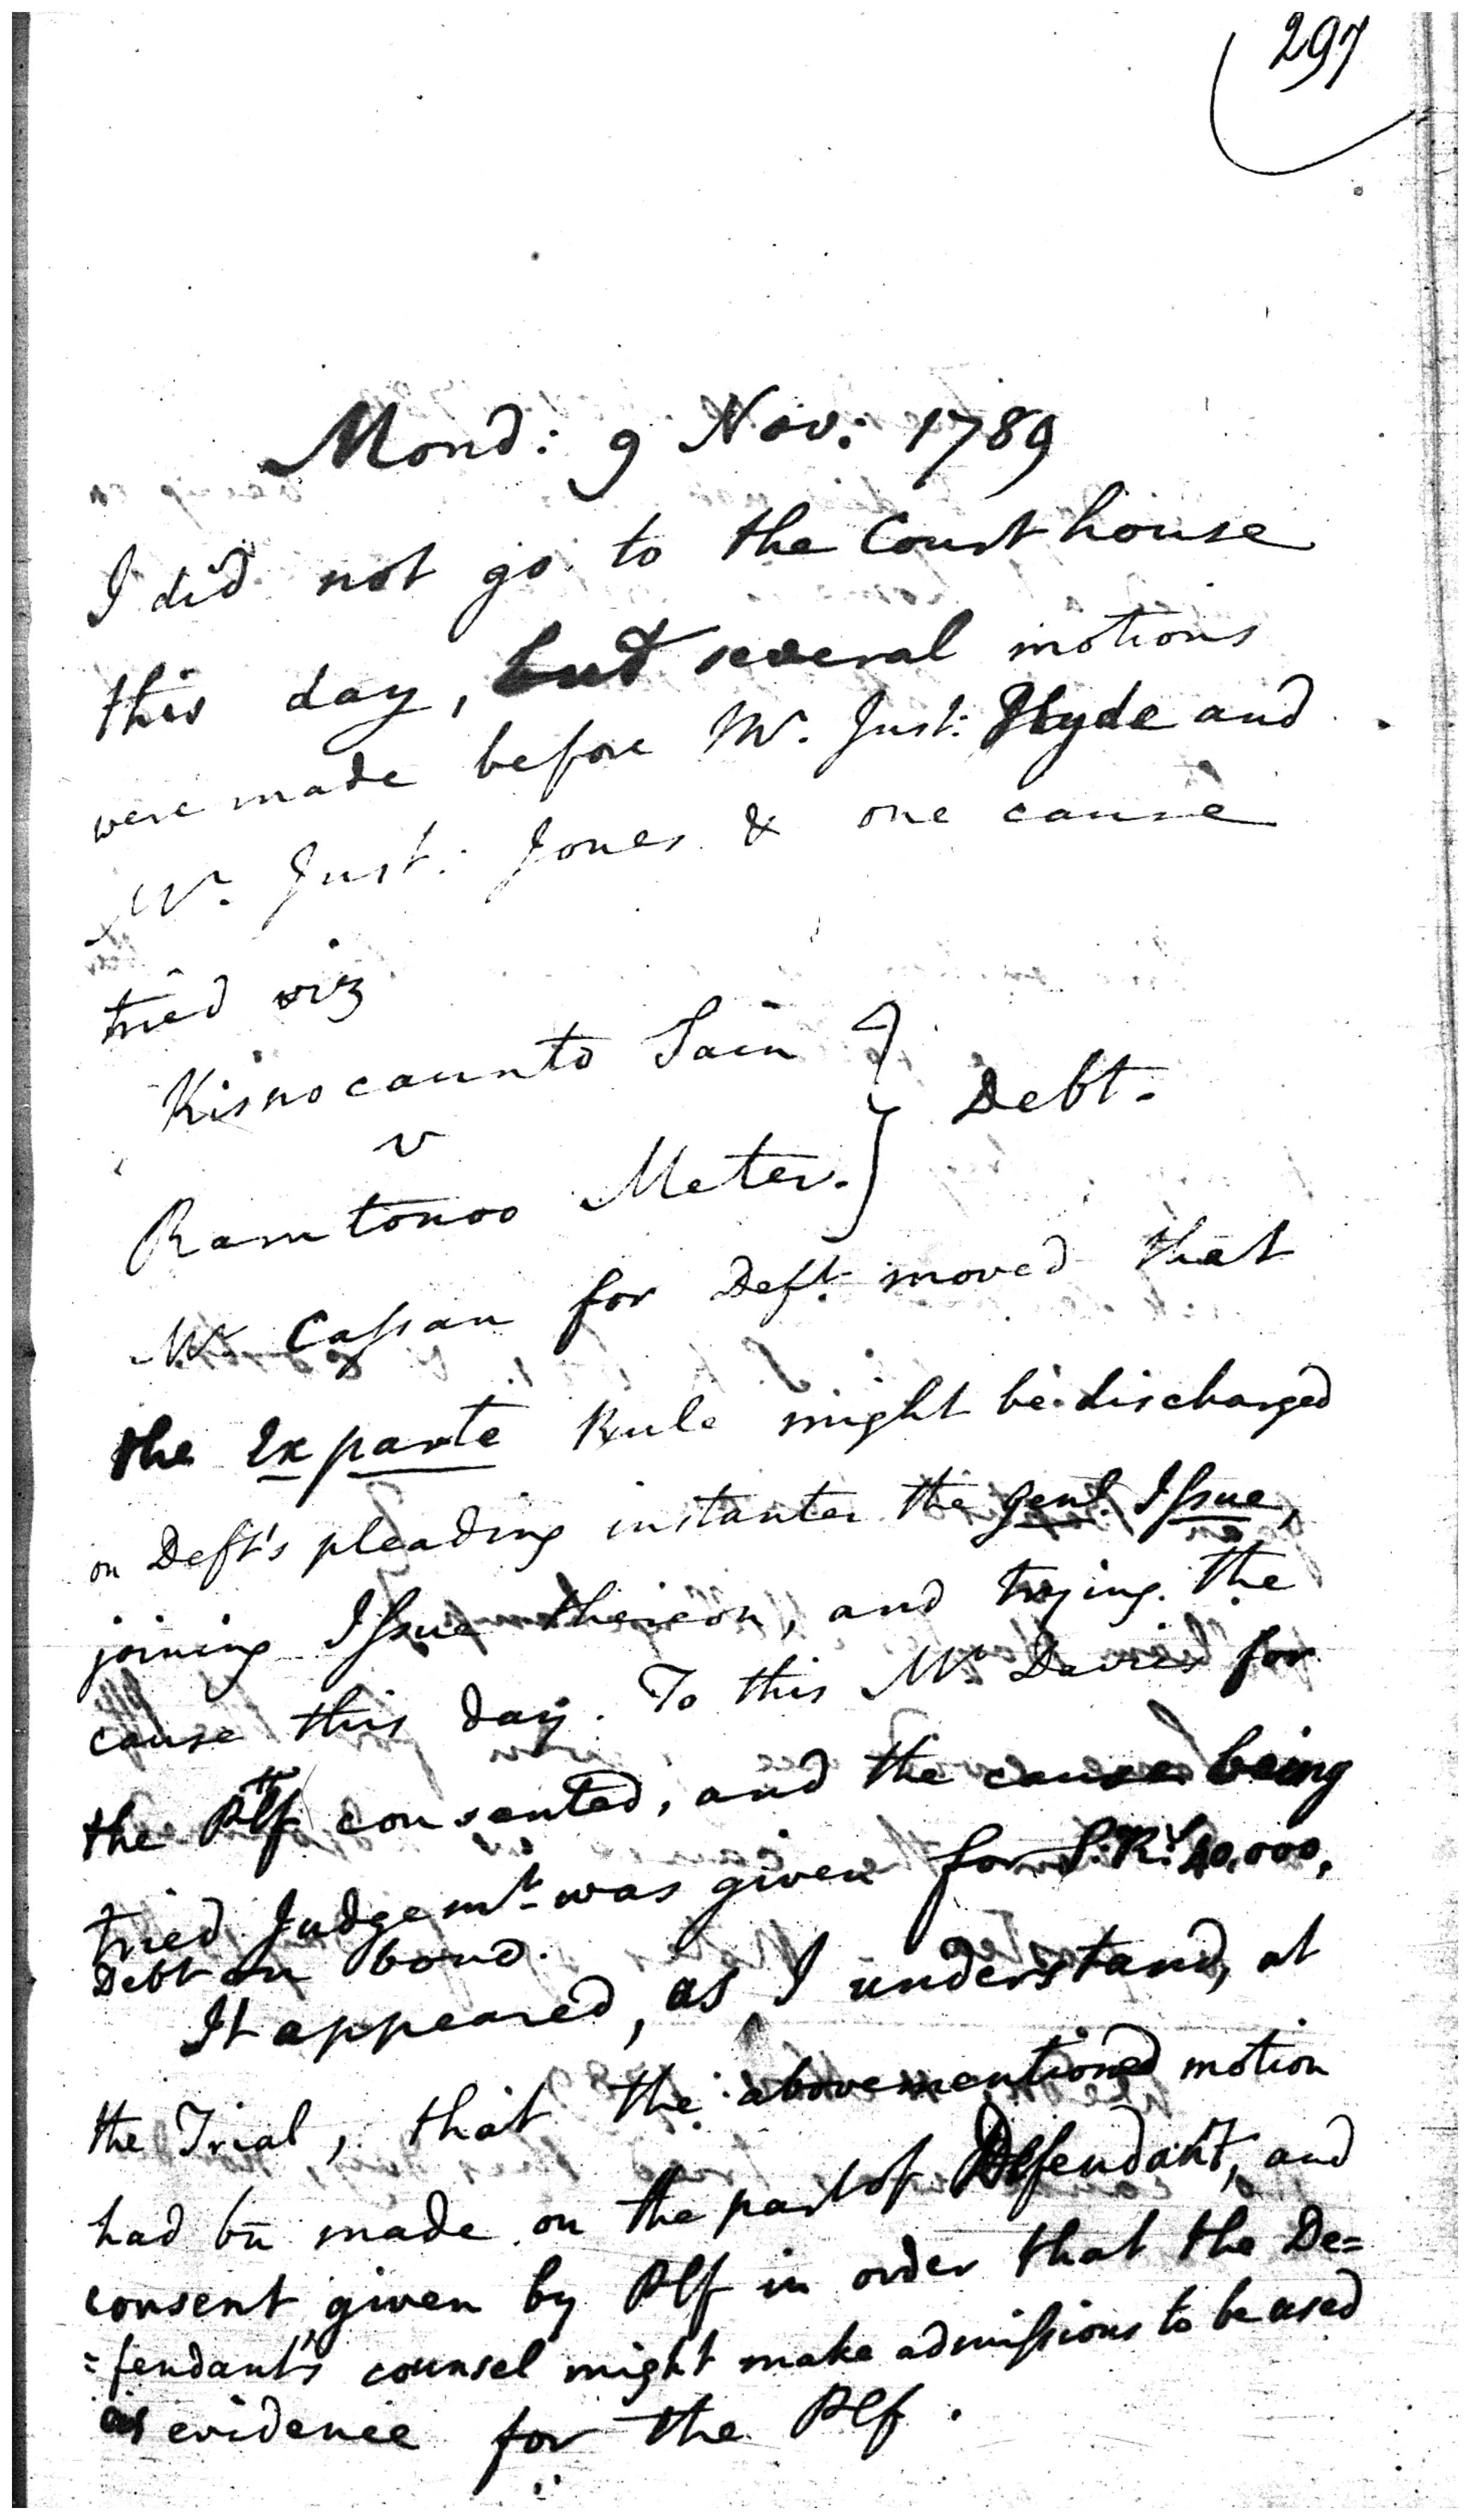 297
Mond: 9 Nov: 1789
I did not go to the Court house
this day, but several motions
were made before Mr. Just: Hyde and
Mr. Just: Jones & one cause
tried viz
Kisnocaunto Sain }
v } Debt.
Ramtonoo Meter. }
Mr Cassan for Deft. moved that
the Ex parte Rule might be discharged
on Deft's pleading instanter the genl. Issue,
joining Issue thereon, and trying the
cause this day. To this Mr Davies for
the Plf consented, and the cause being
tried Judgemt. was given for S.Rs. 40,000,
Debt on bond.
It appeared, as I understand, at
the Trial, that the abovementioned motion
had bn made on the part of Defendant, and
consent given by Plf in order that the De=
=fendant's counsel might make admissions to be used
as evidence for the Plf.